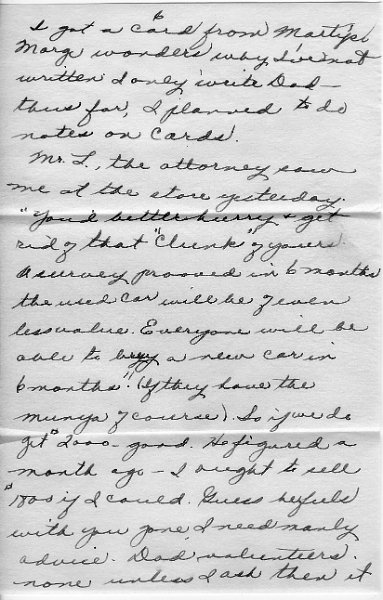 6
I got a card from Marty's
Marge wonders why I've not
written I only write Dad —
thus far, I planned to do
notes on cards.
Mr. L., the attorney saw
me at the store yesterday.
"You'd better hurry & get
rid of that "Clunk" of yours.
A survey prooved in 6 months
the used car will be of even
less value. Everyone will be
able to buy a new car in
6 months"! (If they have the
munya of course). So if we do
get $2000 - good. He figured a
month ago - I ought to sell
$1800 if I could. Guess he feels
with you gone, I need manly
advice. Dad volunteers
none unless I ask then it